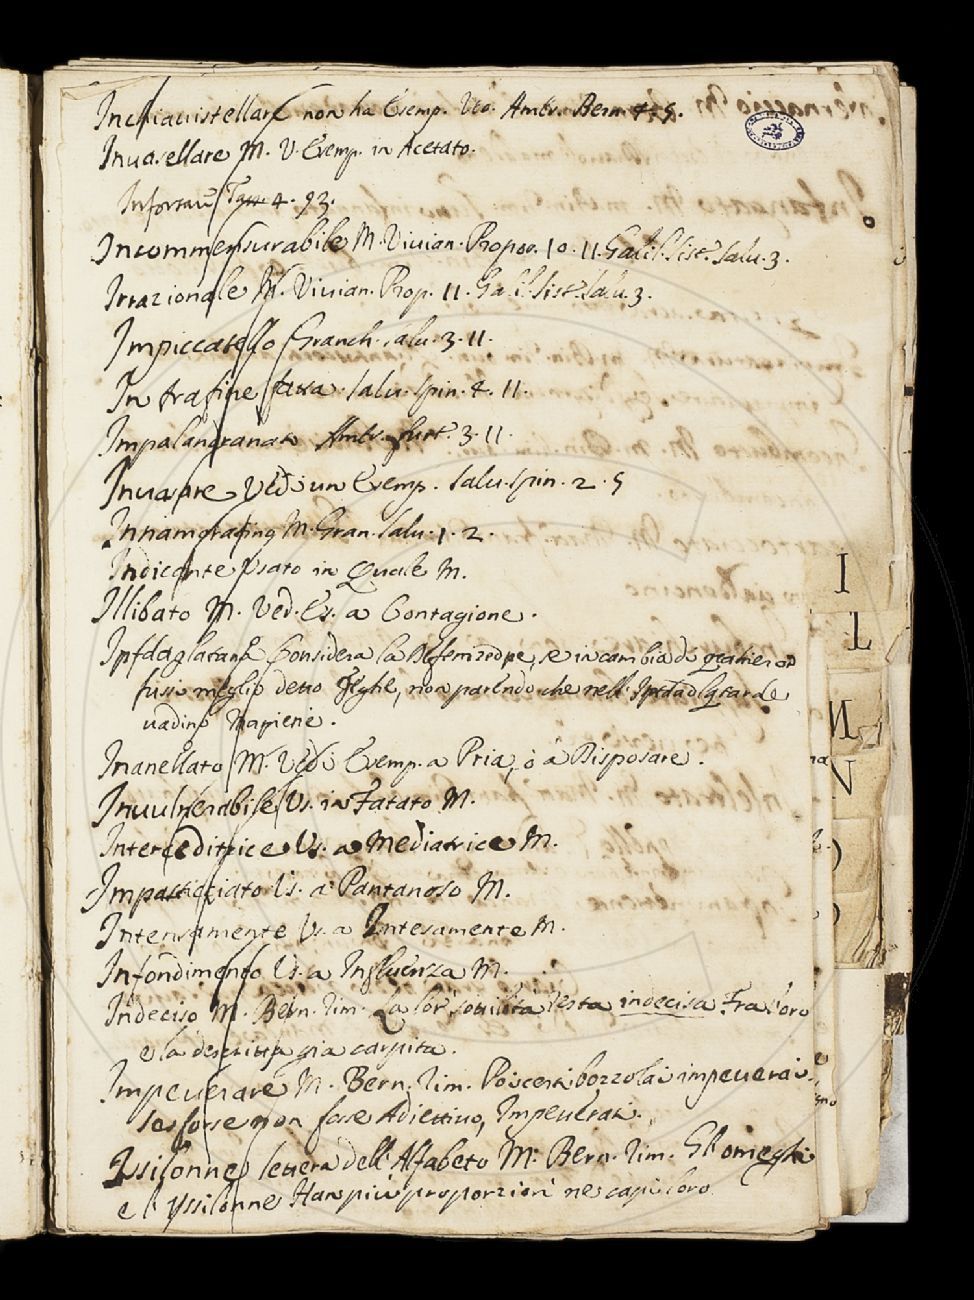 Inchiavistellare non ha Esemp. Ved. Ambr. Bern. 4. 9.
Invasellare M. V. Esemp. in Acetato.
4. 93.
Incommensurabile M. Vivian. Propor. 10. 11. Galil. Sist. Salu. 3.
Irrazionale M. Vivian. Prop. 11. Galil. Sist. Salu. 3.
Impiccatello Granch. Salu. 3. 11.
In frafine fatta. Salu. Spin. 4. 11.
Impalandranato Ambr. furt. 3. 11.
Vedi un Esemp. Salu. Spin. 2. 5
M. Gran. Salu. 1. 2.
Indicante Usato in Quale M.
Illibato M. Ved. Es. a Contagione.
Considera la se in cambio di
fussi meglio detto non parendo che nell'
vadino
Inanellato M. Vedi Esemp. a Pria, o a Disposare.
Invulnerabile Us. in Fatato M.
Interceditrice Us. a Mediatrice M.
Impasticciato Us. a Pantanoso M.
Intensamente Us. a Intesamente M.
Infondimento Us. a Influenza M.
Indeciso M. Bern. Rim. La lor sottilità resta indecisa Fra l'oro
e la descritta già carpita.
Impeverare M. Bern. Rim. impeverati,
se forse non fosse Adiettivo, Impeverati.
Issilonne lettera dell'Alfabeto M. Bern. Rim. Gl'omeghi
e l'yssilonne Han più proporzion ne capi loro
I
L
M
N
O